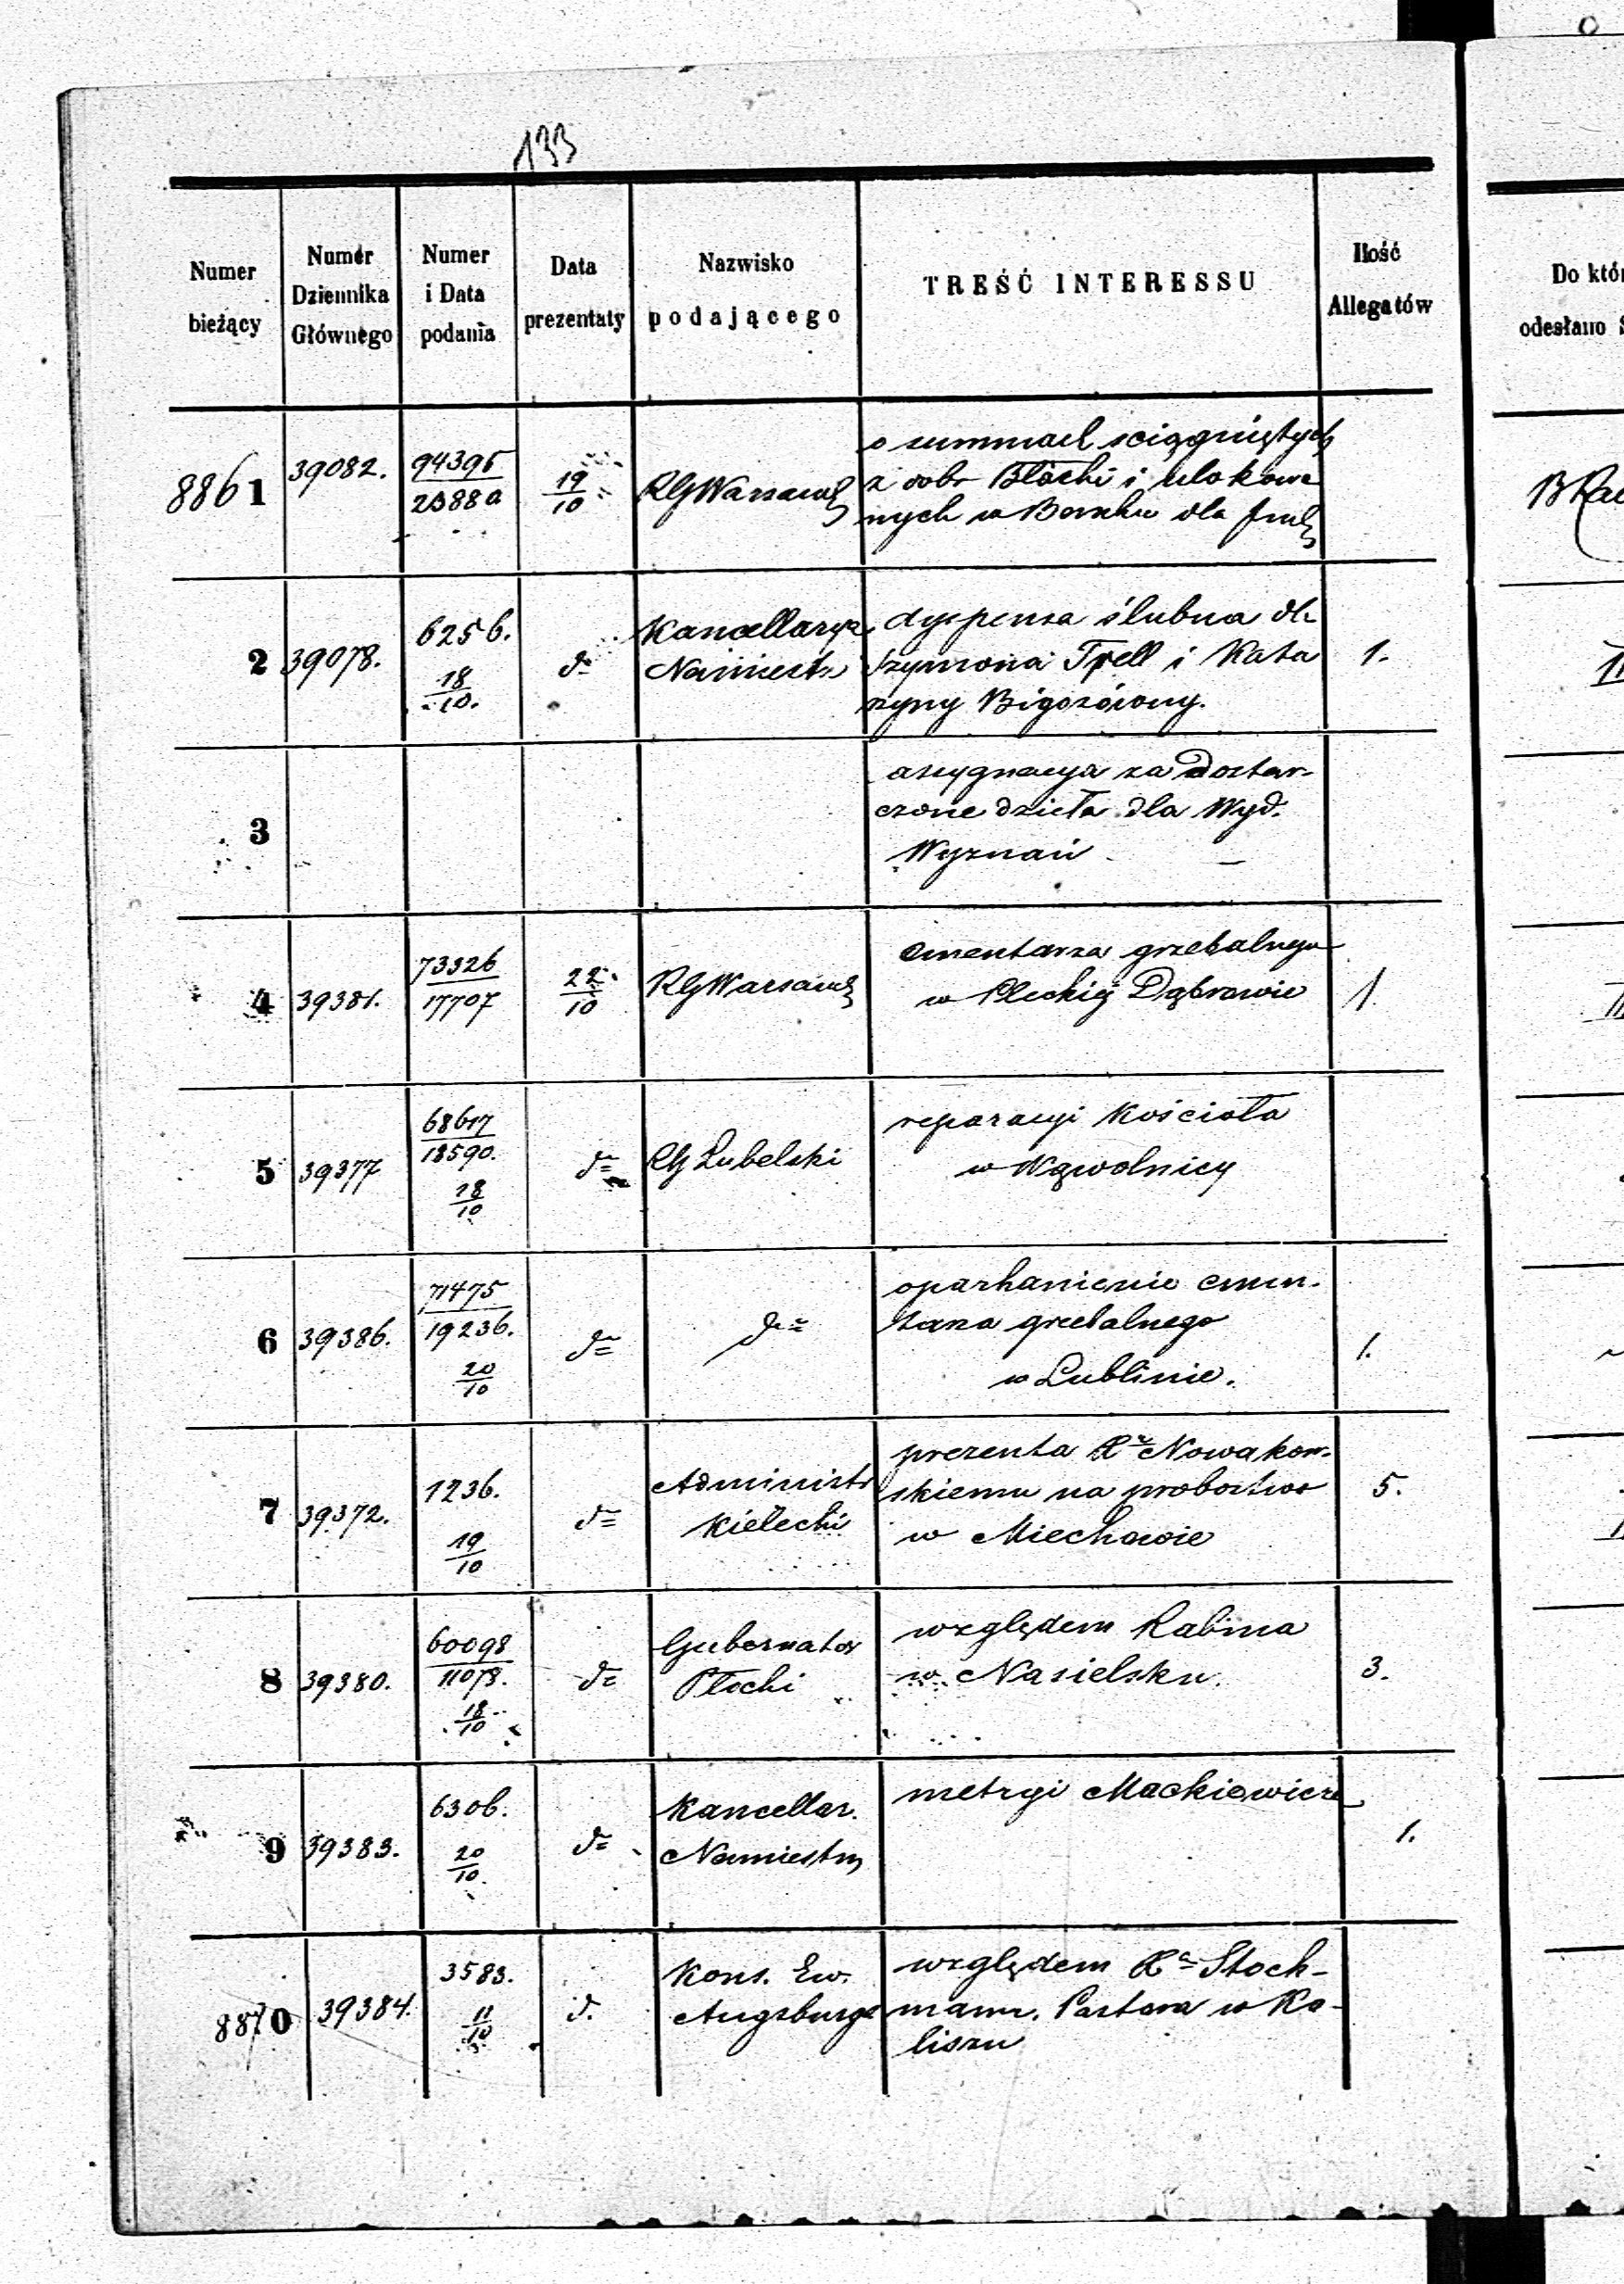 133
Numer bieżący
Numer Dziennika Głównego
Numer i Data podania
Data prezentaty
Nazwisko podającego
TREŚĆ INTERESSU
Ilość Allegatów
Do któr
odesłano S
8861
39082.
94395
2388a
19/10
RGWarsaws
o summach sciągniętych
z dobr Błochi i ulokowa
nych w Banku dla
2
39078.
6256.
18/10.
do
Kancellarya
Namiestn
dyspensa ślubna dla
Szymona Trell i Kata
rzyny Bigozówny.
1.
3
assygnacya za Dostar-
czone dzieła dla Wyd.
Wyznań
4
39381.
73326
17707
22/10
RGWarsaws
cmentarza grzebalnego
w Pleckiej Dąbrowie
1
5
39377
68617
18590.
18/10
do
RG Lubelski
reparacyi Kościoła
w Wąwolnicy
6
39386.
71475
19236.
20/10
do
do
oparkanienie cmen-
tarza grzebalnego
w Lublinie.
1.
7
39372.
1236.
19/10
do
Administr
Kielecki
prezenta Xu Nowakow-
skiemu na probostwo
w Miechowie
5.
8
39380.
60098
11078.
18/10
do
Gubernator
Płocki
względem Rabina
w Nasielsku.
3.
9
39383.
6306.
20/10.
do
Kancellar.
Namiestn
metryi Mackiewicza
1.
8870
39384.
3583.
11/10
d.
Kons. Ew.
Augsburgs
względem Xa Stoch-
mann. Pastora w Ka-
liszu